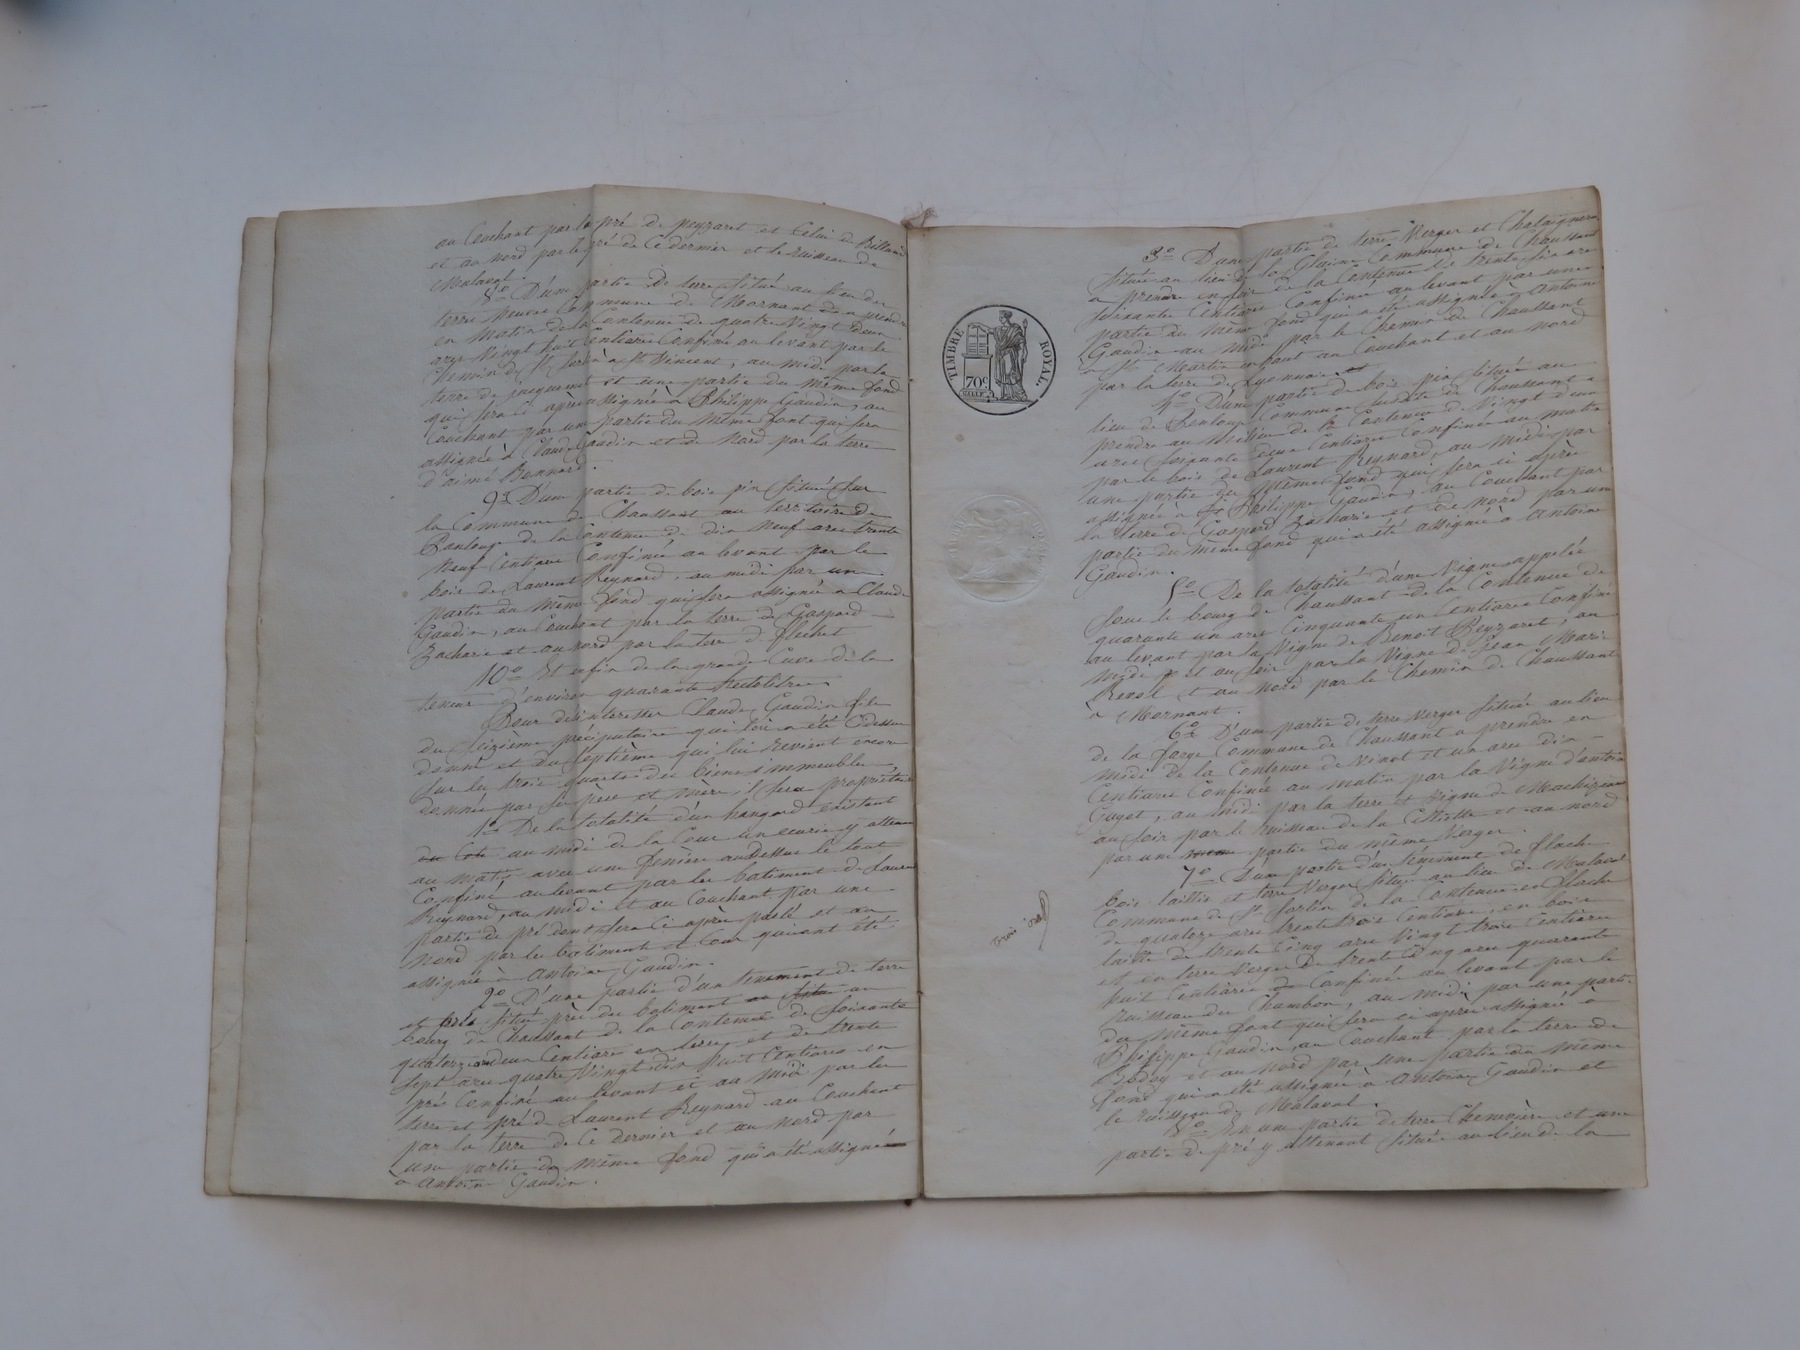 au Couchant par le pré de peyzaret et Celui de Billiard
et au nord par le pré de Ce dernier et le ruisseau de
Malaval.
8° D'une partie de terre située au lieu des
terres neuves Commune de Mornant à prendre
en matin de la Contenue de quatre Vingt deux
ares Vingt huit Centiares Confinée au levant par le
Chemin de St Sorlin à St Vincent, au midi par la
terre de jacquemet et une partie du même fond
qui sera ci après assignée à Philippe Gaudin, au
Couchant par une partie du même font qui sera
assignée à Claude Gaudin et de Nord par la terre
d'aimé Bonnard.
9° D'une partie de bois pin située sur
la Commune de Chaussant au territoire de
de la Contenue de dix neuf ares trente
Neuf Centiares Confinée au levant par le
bois de Laurent Reynard, au midi par une
partie du même fond qui sera assignée à Claude
Gaudin, au Couchant par la terre de Gaspard
Zacharie et au nord par la terre de flechet
10° Et enfin de la grande Cuve de la
teneur d'environ quarante hectolitres
Pour désintéresser Claude Gaudin fils
du Seizième préciputaire qui lui a été Cidessus
donné et du Septième qui lui revient encore
sur les trois quarts des biens immeubles
donnés par ses père et mère, il sera propriétaire
1° De la totalité d'un hangard existant
du Coté au midi de la Cour un ecurie y attenant
au matin avec une fenière au dessus le tout
Confiné au levant par les batiment de Laurent
Reynard, au midi et au Couchant par une
partie de pré dont sera Ci après parlé et au
Nord par les batiments et Cour qui ont été
assignés à Antoine Gaudin.
2° D'une partie d'un tenement de terre
et prés situé près du batiment au
bourg de Chaussant de la Contenue de soixante
quatorze ares deux Centiares en terre et de trente
sept ares quatre Vingt dix huit Centiares en
prés Confiné au levant et au midi par les
terre et pré de Laurent Reynard au Couchant
par la terre de Ce dernier et au Nord par
une partie du même fond qui a été assignée
à Antoine Gaudin.
TIMBRE ROYAL.
70c
trois
3° D'une partie de terre Verger et Chataigneraie
située au lieu de la Glaine Commune de Chaussant
à prendre en soir de la Contenue de trente six ares
soixante Centiares Confinée au levant par une
partie du même fond qui a été assignée à Antoine
Gaudin au midi par le Chemin de Chaussant
à St Martin en haut au Couchant et au Nord
par la terre de Lyonnais
4° D'une partie de bois pin située au
lieu de Commune susdite de Chaussant à
prendre au milieu de la Contenue de Vingt deux
ares soixante Centiares Confinée au matin
par le bois de Laurent Reynard, au midi par
une partie du même fond qui sera ci après
assignée à Philippe Gaudin, au Couchant par
la terre de Gaspard Zacharie et de Nord par une
partie du même fond qui a été assignée à Antoine
Gaudin.
5° De la totalité d'une Vigne appelée
sous le bourg de Chaussant de la Contenue de
quarante un ares Cinquante un Centiares Confinée
au levant par la Vigne de Benoit Peyzaret, au
midi et au soir par la Vigne de Jean Marie
Revol et au nord par le Chemin de Chaussant
à Mornant.
6° D'une partie de terre Verger située au lieu
de la forge Commune de Chaussant à prendre en
midi de la Contenue de Vingt et un ares dix
Centiares Confinée au matin par la Vigne d'antoine
Guyot, au midi par la terre et Vigne de
au soir par le ruisseau de la et au nord
par une partie du même Verger.
7° D'une partie d'un tenement de flache
bois taillis et terre Verger situé au lieu de Malaval
Commune de St Sorlin de la Contenue en flache
de quatorze ares trente trois Centiares, en bois
taillis de trente Cinq ares Vingt trois Centiares
et en terre Verger de trente Cinq ares quarante
huit Centiares Confiné au levant par le
ruisseau du Chambon, au midi par une partie
du même font qui sera ci après assigné à
Philippe Gaudin, au Couchant par la terre de
et au Nord par une partie du même
fond qui a été assignée à Antoine Gaudin et
le ruisseau de Malaval.
8° En une partie de terre Chenevière et une
partie de pré y attenant située au lieu de la